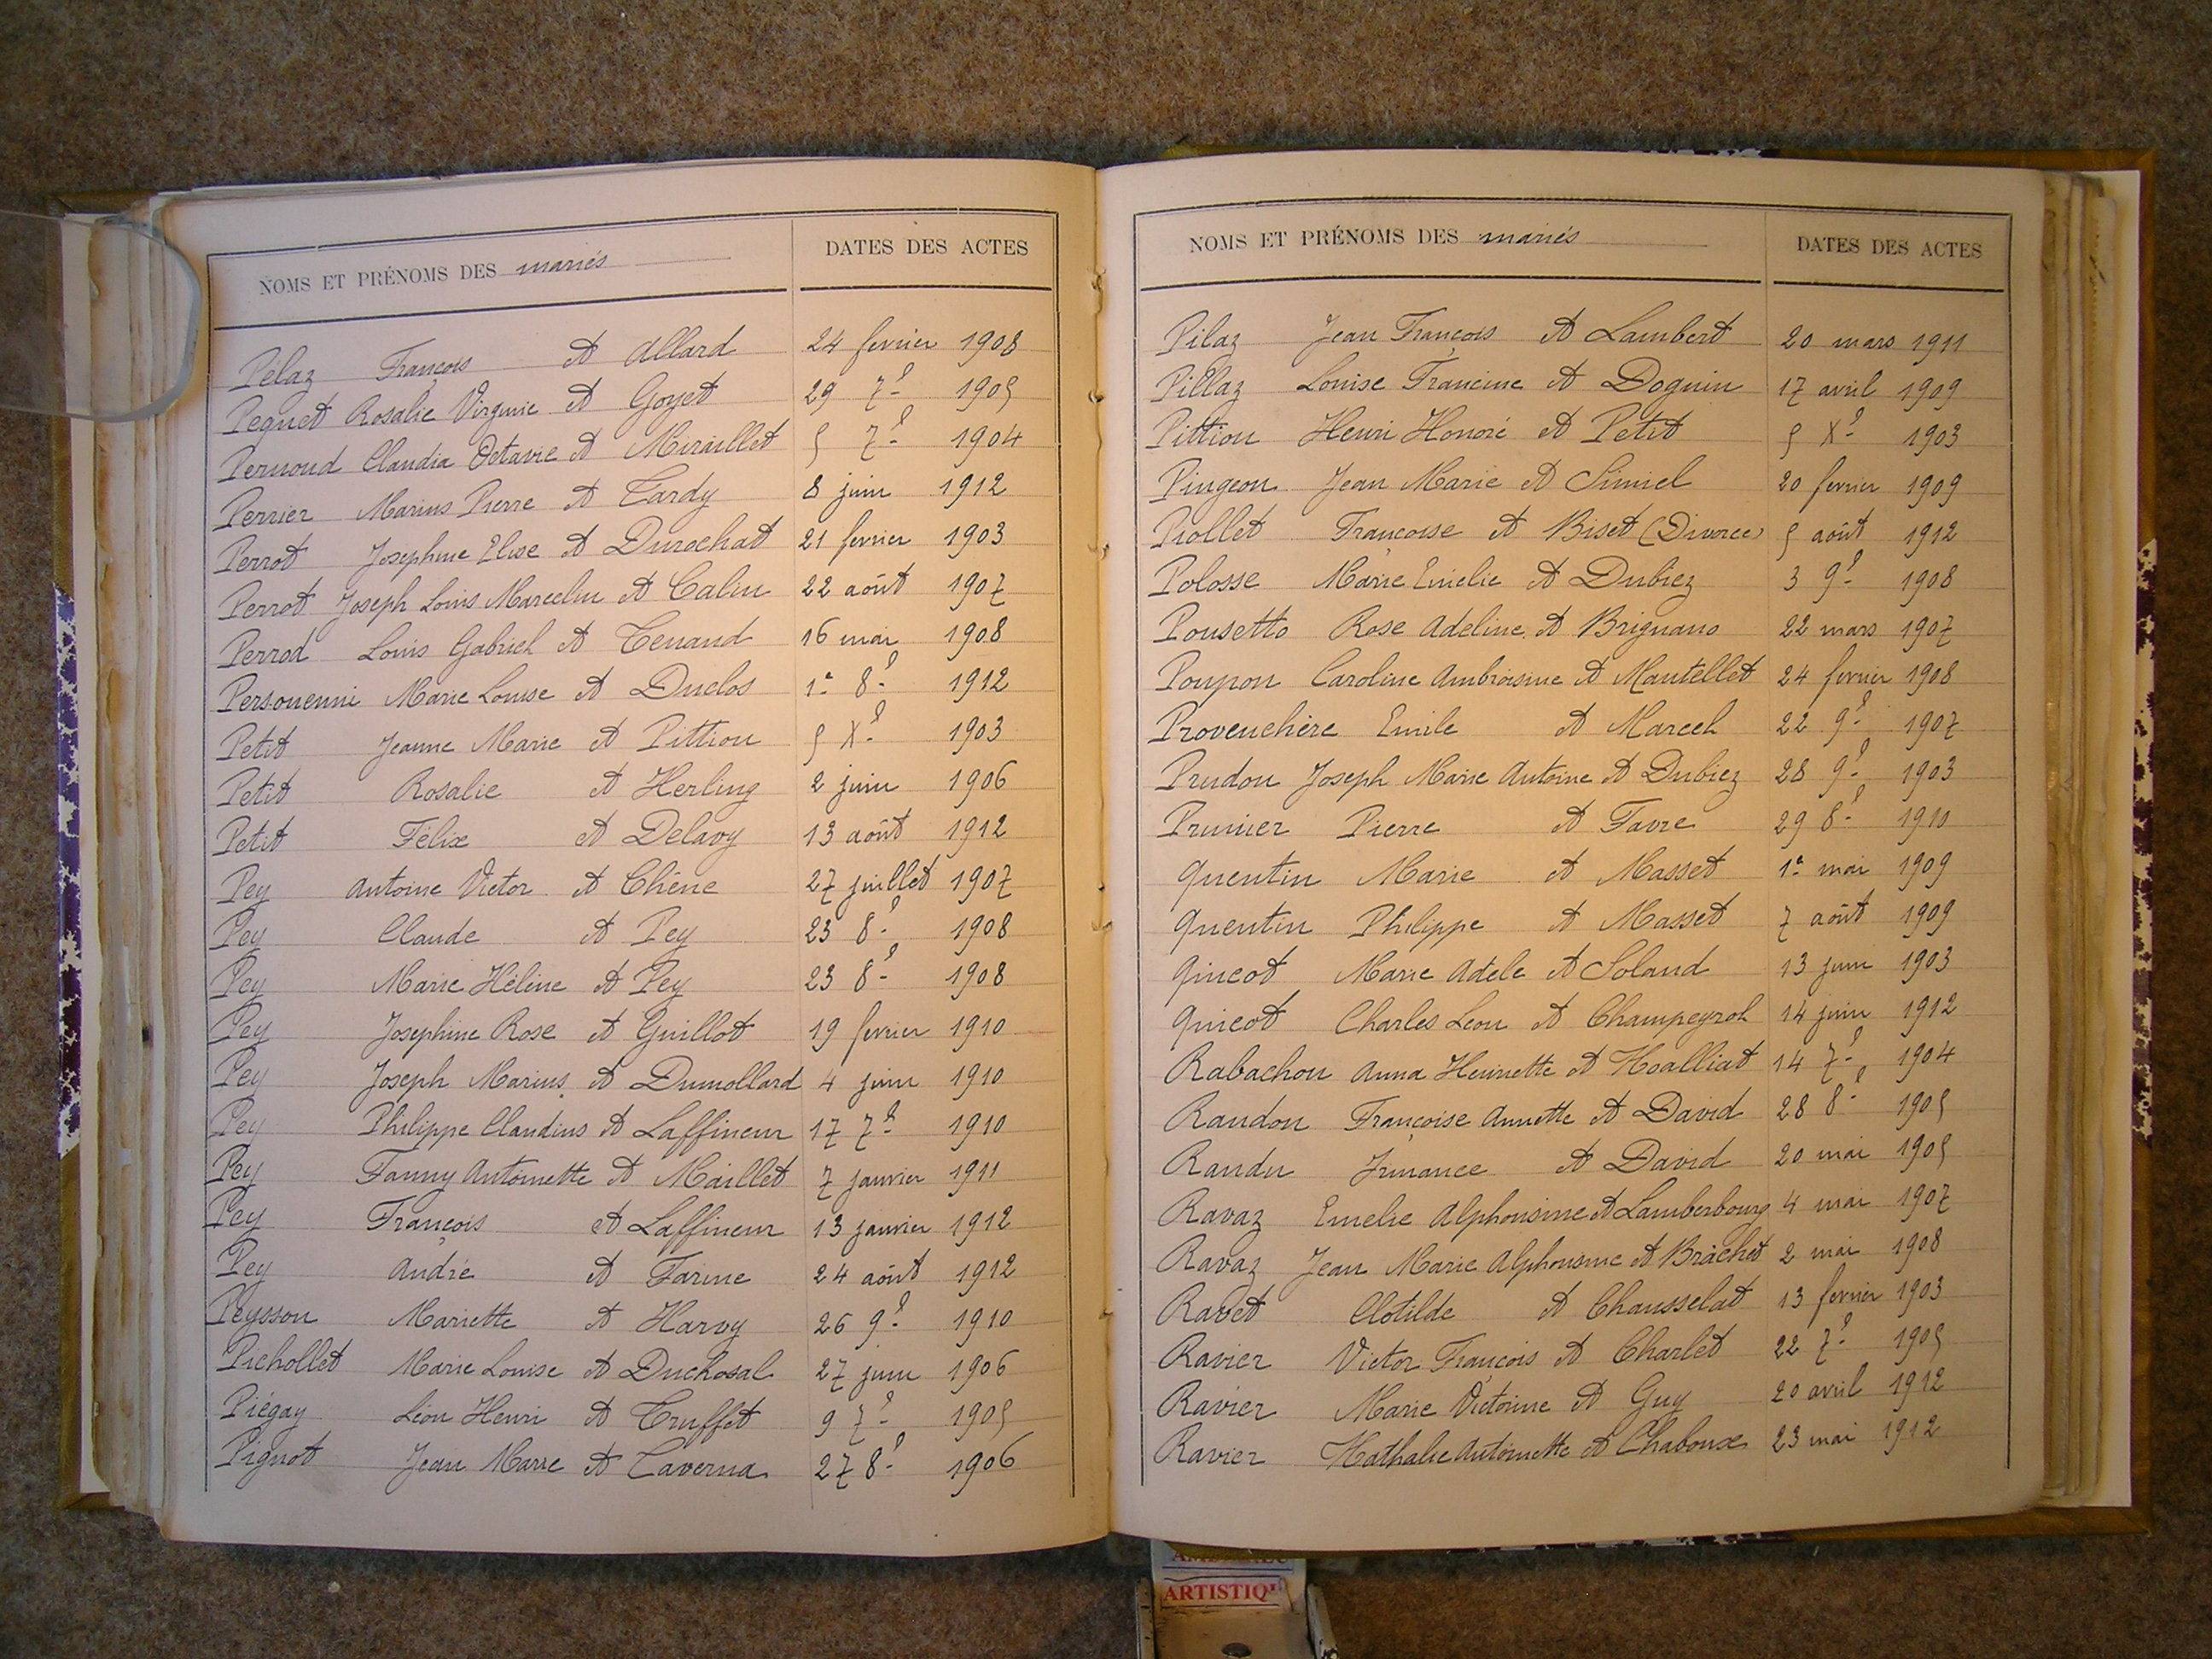 NOMS ET PRÉNOMS DES mariés DATES DES ACTES
Pélaz François et Allard 24 fevrier 1908
Pequet Rosalie Virginie et Goyet 29 7e 1905
Pernoud Claudia Octavie et Miraillet 5 7e 1904
Perrier Marius Pierre et Tardy 8 juin 1912
Perrot Josephine Elise et Durochat 21 fevrier 1903
Perrot Joseph Louis Marcelin et Calin 22 août 1907
Perrod Louis Gabriel et Tenand 16 mai 1908
Personenni Marie Louise et Duclos 1er 8e 1912
Petit Jeanne Marie et Pittion 5 Xe 1903
Petit Rosalie et Herling 2 juin 1906
Petit Félix et Delavy 13 août 1912
Pey Antoine Victor et Chêne 27 juillet 1907
Pey Claude et Pey 23 8e 1908
Pey Marie Hélène et Pey 23 8e 1908
Pey Josephine Rose et Guillot 19 fevrier 1910
Pey Joseph Marius et Dumollard 4 juin 1910
Pey Philippe Claudius et Laffineur 17 7e 1910
Pey Fanny Antoinette et Maillet 7 janvier 1911
Pey François et Laffineur 13 janvier 1912
Pey André et Farine 24 août 1912
Peysson Mariette et Harvy 26 9e 1910
Pichollet Marie Louise et Duchosal 27 juin 1906
Piégay Léon Henri et Truffet 9 7e 1905
Pignot Jean Marie et Taverna 27 8e 1906
NOMS ET PRÉNOMS DES mariés DATES DES ACTES
Pilaz Jean François et Lambert 20 mars 1911
Pillaz Louise Francine et Doguin 17 avril 1909
Pittion Henri Honoré et Petit 5 Xe 1903
Pingeon Jean Marie et Simiel 20 fevrier 1909
Piollet Françoise et Biset (Divorce) 5 août 1912
Polosse Marie Emelie et Dubiez 3 9e 1908
Pousetto Rose Adeline et Brignano 22 mars 1907
Poupon Caroline Ambroisine et Mantellet 24 fevrier 1908
Provenchère Emile et Marcel 22 9e 1907
Prudon Joseph Marie Antoine et Dubiez 28 9e 1903
Prunier Pierre et Favre 29 8e 1910
Quentin Marie et Masset 1er mai 1909
Quentin Philippe et Masset 7 août 1909
Quicot Marie Adele et Soland 13 juin 1903
Quicot Charles Leon et Champeyrol 14 juin 1912
Rabachon Anna Henriette et Noalliat 14 7e 1904
Randon Françoise Annette et David 28 8e 1905
Randu Jrmance et David 20 mai 1905
Ravaz Emelie Alphonsine et Lamberbourg 4 mai 1907
Ravaz Jean Marie Alphonsine et Brachet 2 mai 1908
Ravet Clotilde et Chausselat 13 fevrier 1903
Ravier Victor François et Charlet 22 7e 1905
Ravier Marie Victorine et Guy 20 avril 1912
Ravier Nathalie Antoinette et Chaboux 23 mai 1912
ARTISTIQ